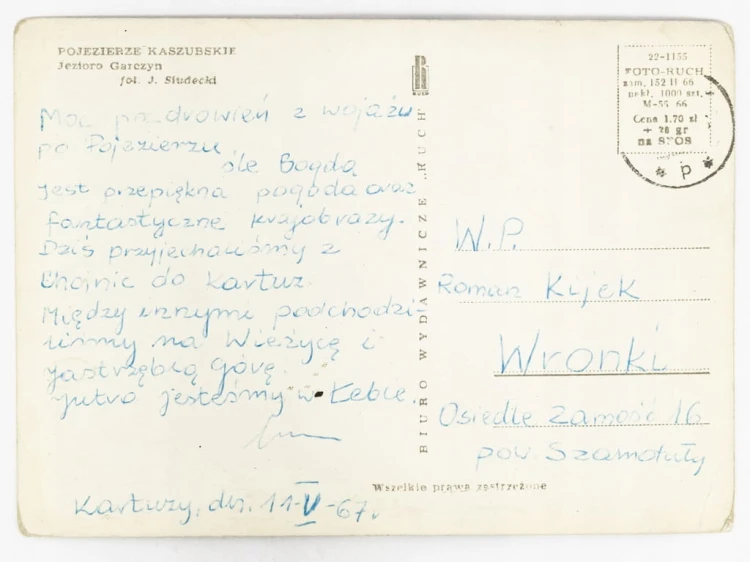 POJEZIERZE KASZUBSKIE
Jezioro Garczyn
fot. J. Siudecki
Moc pozdrowień z wojażu
po Pojezierzu
śle Bogda
Jest przepiękna pogoda oraz
fantastyczne krajobrazy.
Dziś przyjechaliśmy z
Chojnic do Kartuz.
Między innymi podchodzi-
liśmy na Wieżycę i
Jastrzębią Górę.
Jutro jesteśmy w Łebie.
Kartuzy, dn. 11-V-67r
BIURO WYDAWNICZE „RUCH"
RUCH
22-1155
FOTO-RUCH
zam. 152 II 66
nakł. 1000 szt.
M-55 66
Cena 1,70 zł
+ 78 gr
na SFOS
* P *
W.P.
Roman Kijek
Wronki
Osiedle Zamość 16
pow. Szamotuły
Wszelkie prawa zastrzeżone